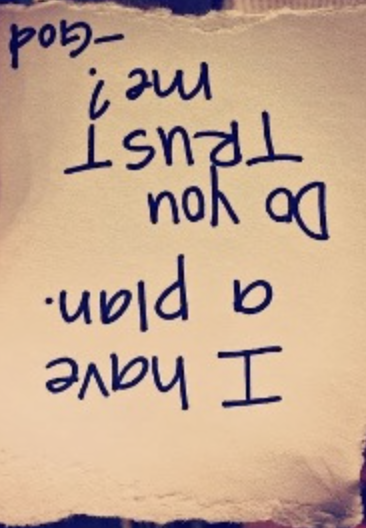 I have
a plan.
Do you
TRUST
me?
-God